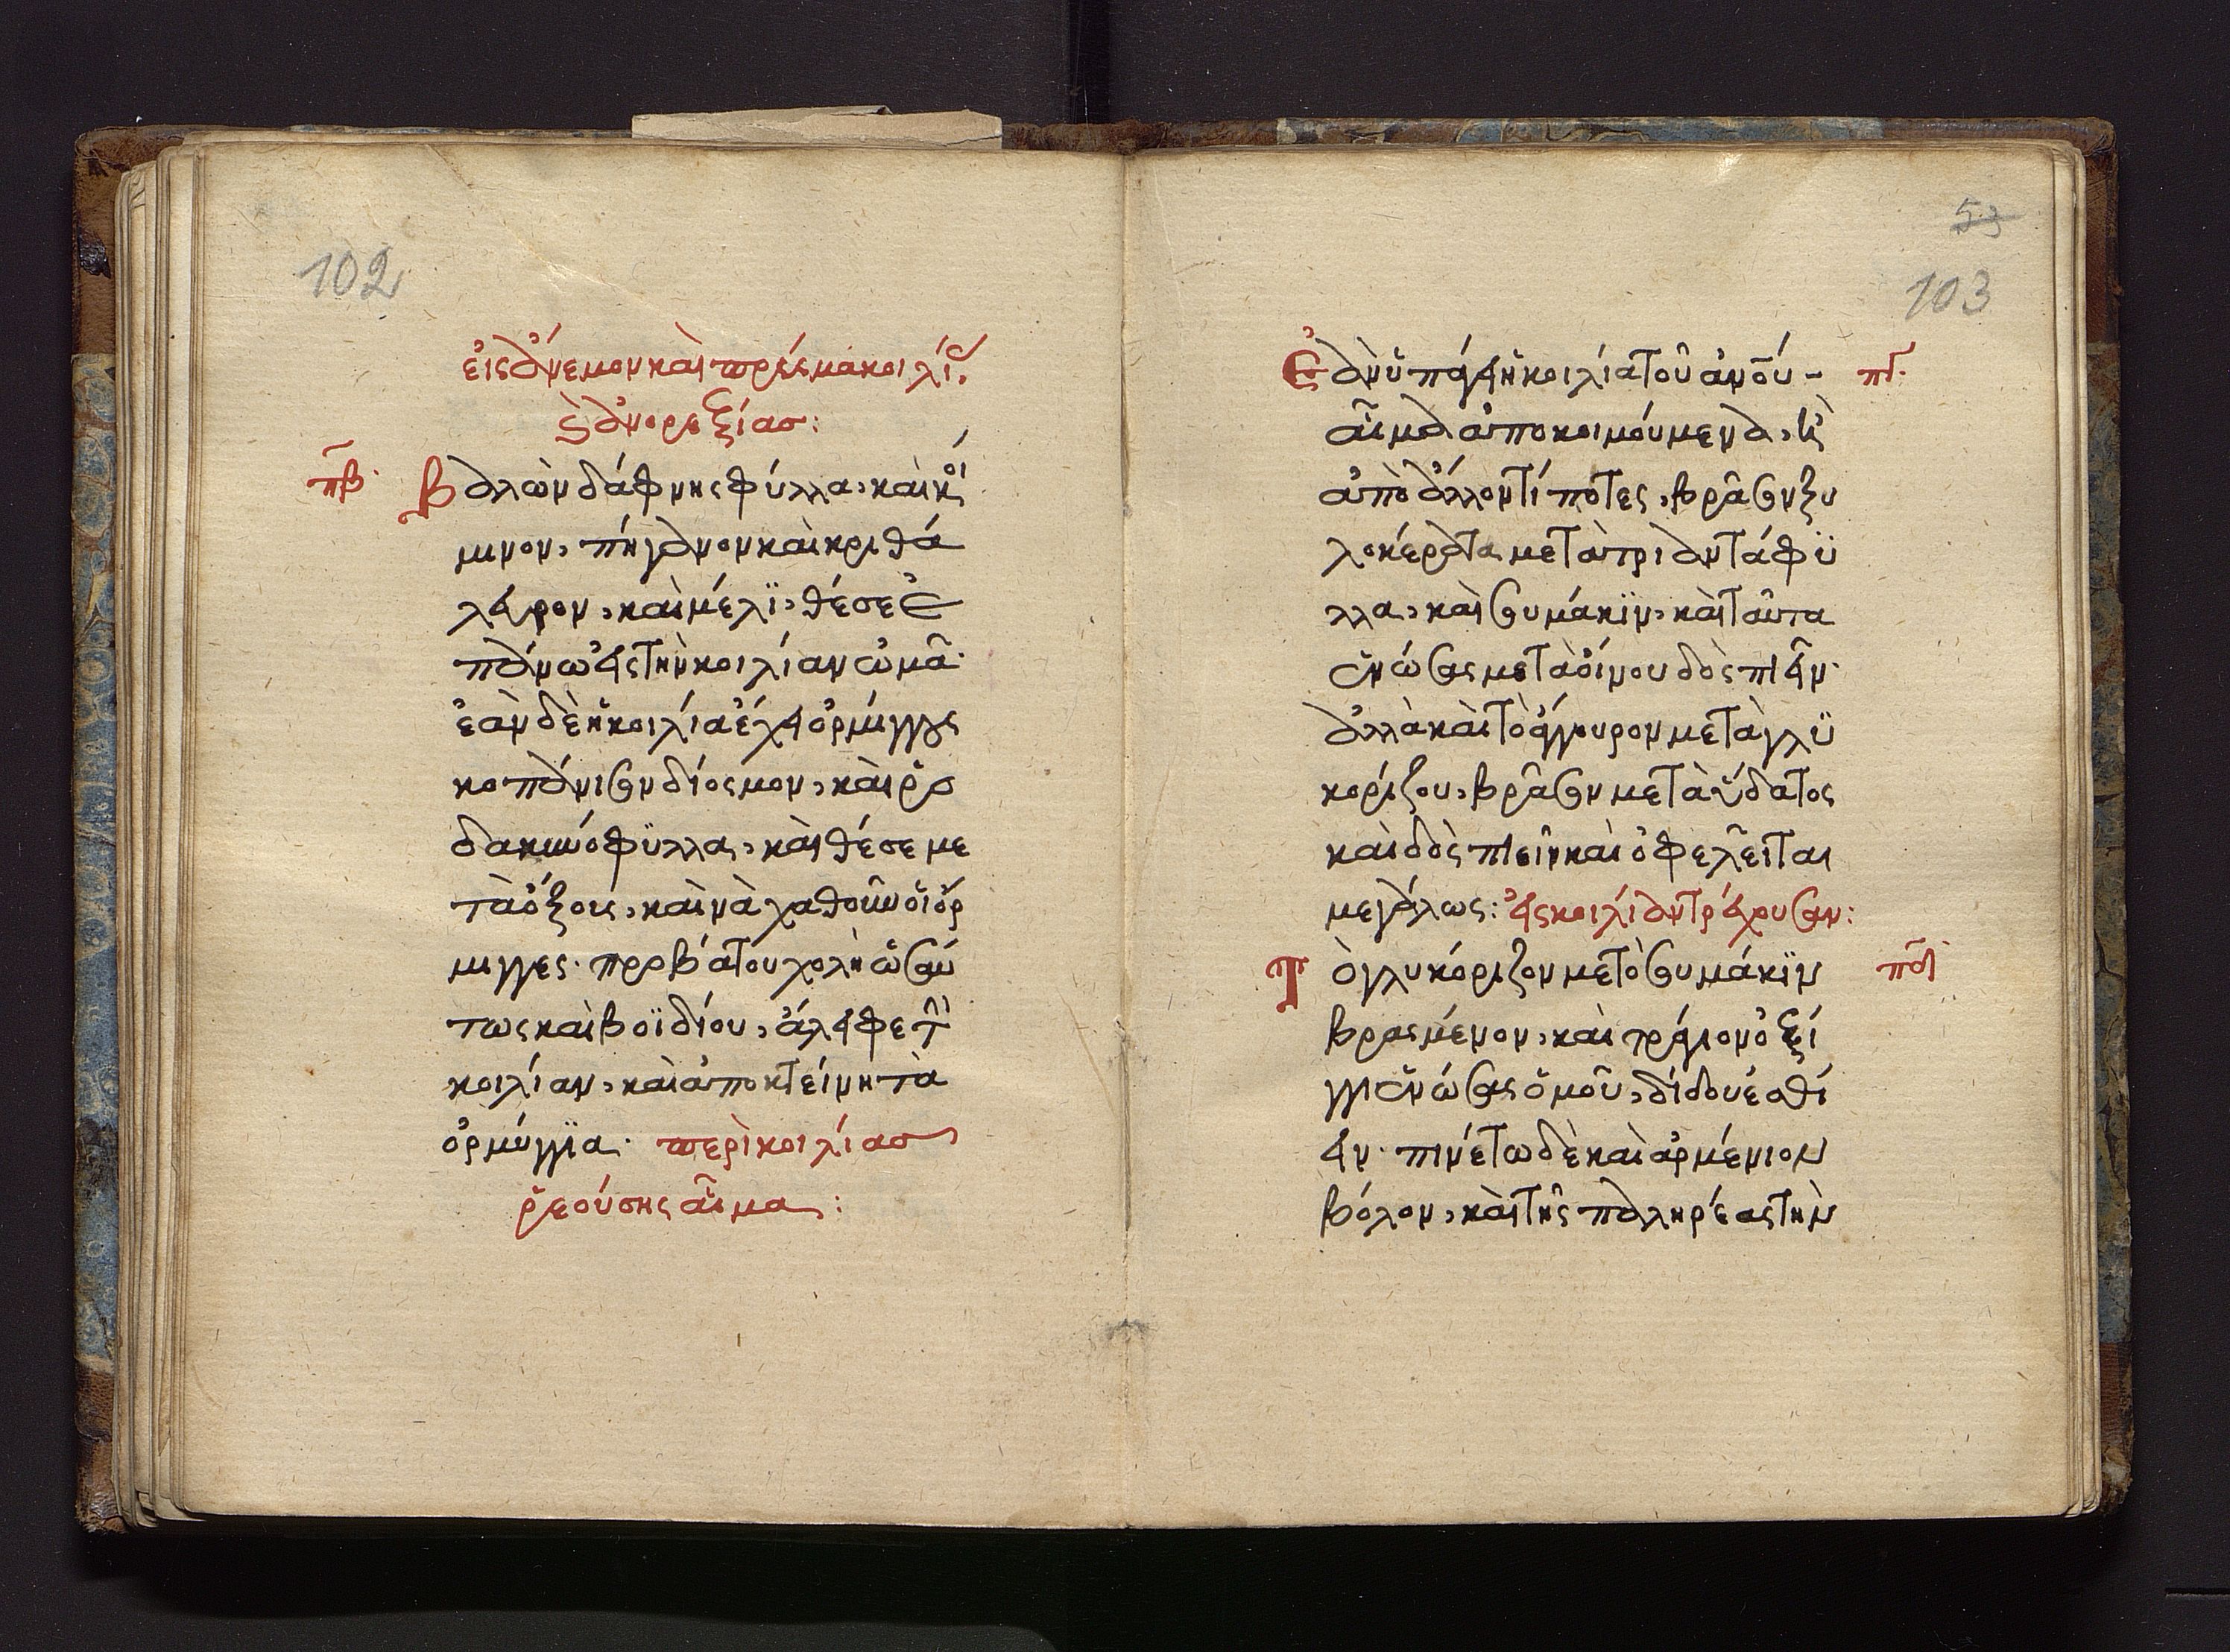 102
εἰς ἄνεμον καὶ πρέσμα κοιλί
ϛ ἀνορεξίας:
πβ
Βαλὼν δάφνης φύλλα, καὶ κύ
μινον, πήγανον καὶ κριθά
λευρον, καὶ μέλϊ, θέσε ἐ
πάνω εἰς τὴν κοιλίαν ὠμᾶ·
ἐὰν δὲ ἡ κοιλία ἔχει ὁρμιγγας
κοπάνισιν δίοσμον, καὶ ῥο
δακινόφϋλλα, καὶ θέσε με
τὰ ὄξους, καὶ νὰ χαθοῦν οἱ ὅρ
μιγγες. προβάτου χολὴ ὡσαύ
τως καὶ βοϊδίου, ἄλειφε τὴν
κοιλίαν, καὶ ἀποκτείνη τὰ
ὁρμύγγϊα. περὶ κοιλίας
ῥεούσης αἷμα:
53
103
Ἐὰν ὑπάγει ἡ κοιλία τοῦ ἀνοῦ -
πγ
αἷμα ἀποκοιμούμενα, κὶ
ἀπὸ ἄλλον τί ποτες, βράσιν ξυ
λοκέρατα μετὰ τριαντάφϋ
λλα, καὶ σουμάκϊν, καὶ ταῦτα
ἑνώσας μετὰ οἴνου δὸς πιεῖν·
ἀλλὰ καὶ τὸ ἄγουρον μετὰ γλϋ
κορίζου, βράσιν μετὰ ὕδατος
καὶ δὸς πιεῖν καὶ ὀφελεῖται
μεγάλως: εἰς κοιλίαν τρέχουσαν:
Τὸ γλυκόριζον με τὸ σουμάκϊν
πδ
βρασμένον, καὶ τράγιον ὀξί
γγι ἑνώσας ὁμοῦ, δίδου ἐσθί
ειν. πινέτω δὲ καὶ ἀρμένιον
βόλον, καὶ τῆς παλληρέας τὴν